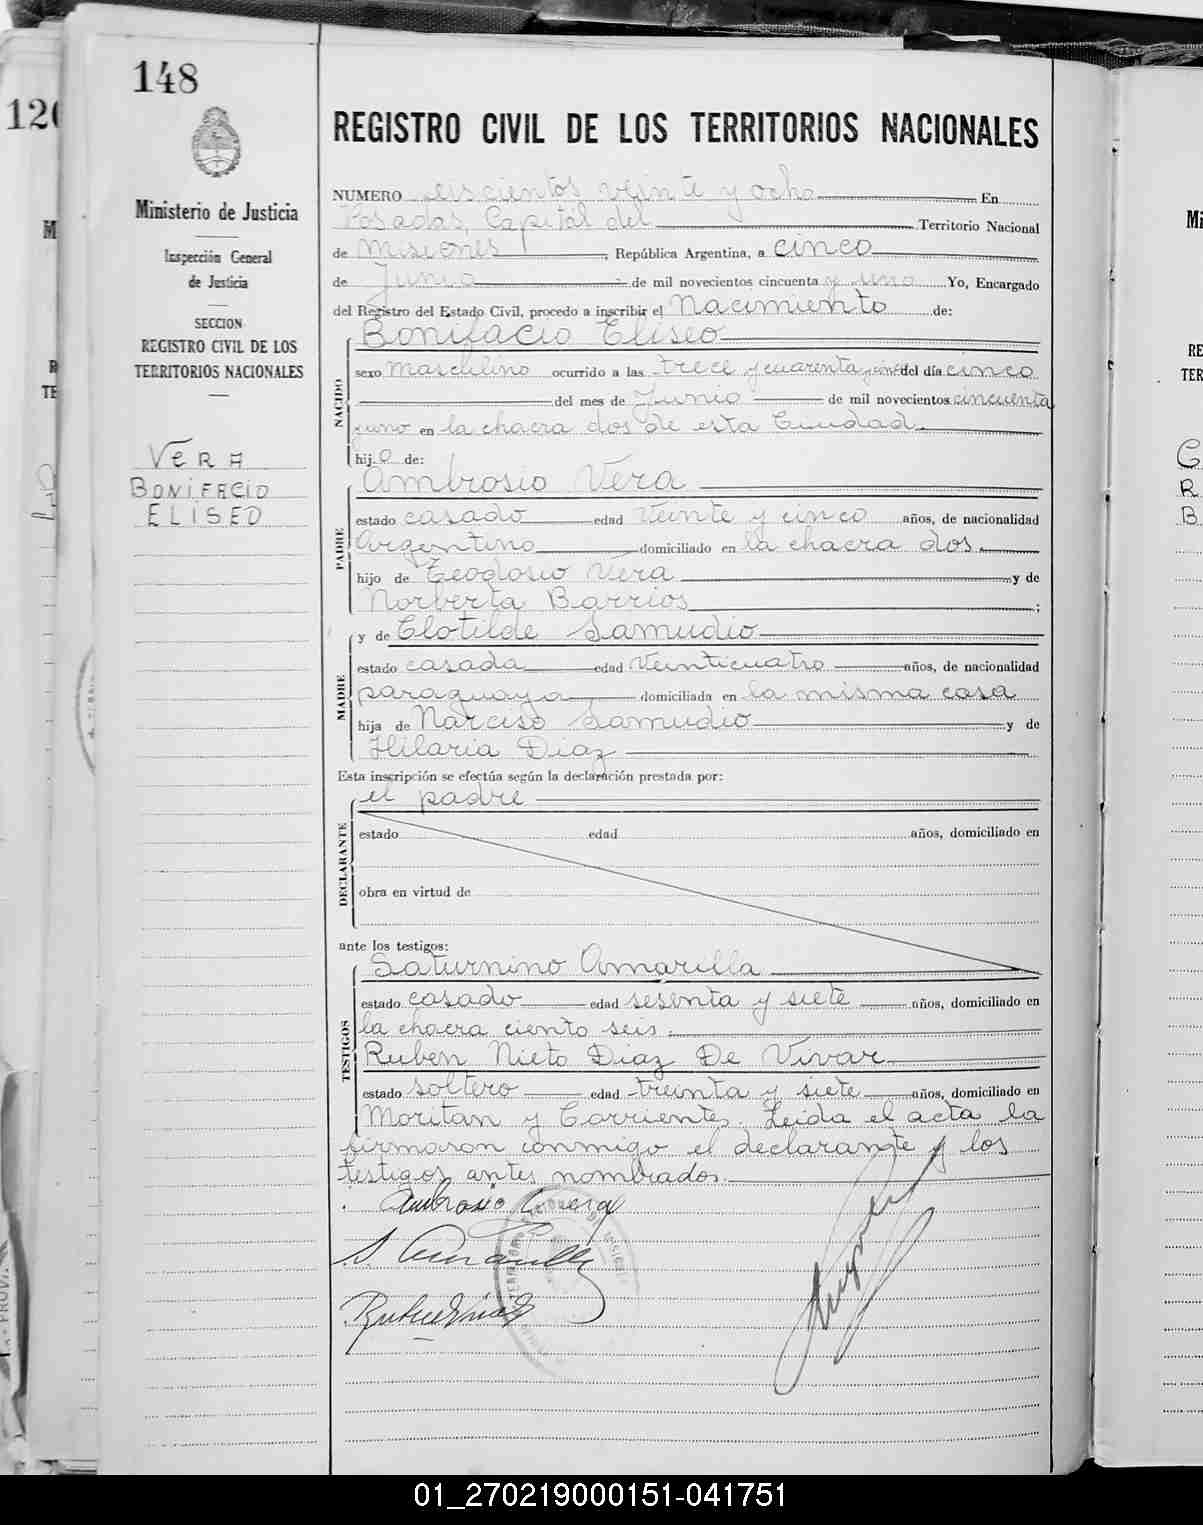 148
Ministerio de Justicia
Inspección General
de Justicia
SECCION
REGISTRO CIVIL DE LOS
TERRITORIOS NACIONALES
VERA
BONIFACIO
ELISEO
REGISTRO CIVIL DE LOS TERRITORIOS NACIONALES
NUMERO seiscientos veinte y ocho En
Posadas, Capital del Territorio Nacional
de Misiones, República Argentina, a cinco
de Junio de mil novecientos cincuenta y uno Yo, Encargado
del Registro del Estado Civil, procedo a inscribir el Nacimiento de:
Bonifacio Eliseo
NACIDO
sexo masculino ocurrido a las trece y cuarenta y del día cinco
del mes de Junio de mil novecientos cincuenta
y uno en la chacra dos de esta Ciudad.
hijo de:
Ambrosio Vera
PADRE
estado casado edad veinte y cinco años, de nacionalidad
Argentino domiciliado en la chacra dos.
hijo de Teodosio Vera y de
Norberta Barrios;
y de Clotilde Samudio
MADRE
estado casada edad veinticuatro años, de nacionalidad
paraguaya domiciliada en la misma casa
hija de Narciso Samudio y de
Hilaria Diaz
Esta inscripción se efectúa según la declaración prestada por:
el padre
DECLARANTE
estado edad años, domiciliado en
obra en virtud de
ante los testigos:
Saturnino Amarilla
TESTIGOS
estado casado edad sesenta y siete años, domiciliado en
la chacra ciento seis.
Ruben Nieto Diaz De Vivar
estado soltero edad treinta y siete años, domiciliado en
Moritan y Corrientes. Leida el acta la
firmaron conmigo el declarante y los
testigos antes nombrados.
Ambrosio Vera
S. Amarilla
120
01_270219000151-041751